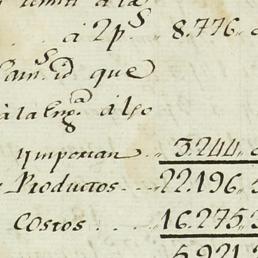 á 2p.s 8.776
id que
á la Lng.a álgo
ymportan .. 3.244
Productos .... 22.196
Costos .... 16.275
5.921